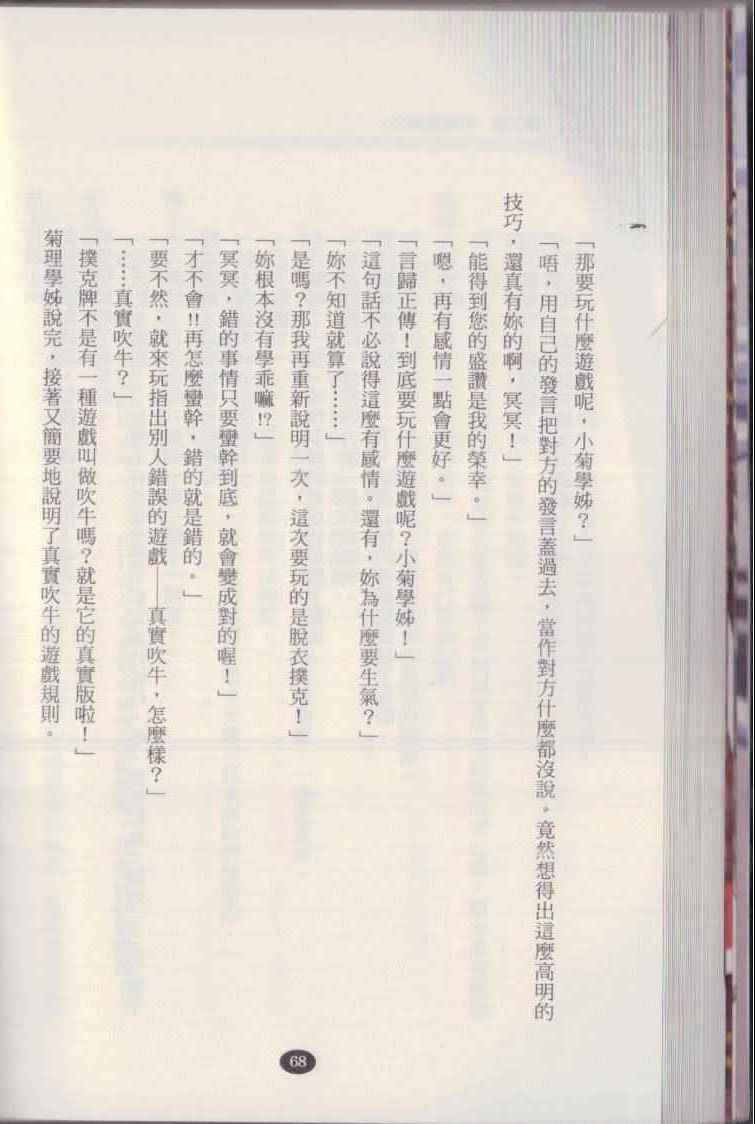 「那要玩什麼遊戲呢，小菊學姊？」
「唔，用自己的發言把對方的發言蓋過去，當作對方什麼都沒說。竟然想得出這麼高明的
技巧，還真有妳的啊，冥冥！」
「能得到您的盛讚是我的榮幸。」
「嗯，再有感情一點會更好。」
「言歸正傳！到底要玩什麼遊戲呢？小菊學姊！」
「這句話不必說得這麼有感情。還有，妳為什麼要生氣？」
「妳不知道就算了……」
「是嗎？那我再重新說明一次，這次要玩的是脫衣撲克！」
「妳根本沒有學乖嘛!?」
「冥冥，錯的事情只要蠻幹到底，就會變成對的喔！」
「才不會!!再怎麼蠻幹，錯的就是錯的。」
「要不然，就來玩指出別人錯誤的遊戲——真實吹牛，怎麼樣？」
「……真實吹牛？」
「撲克牌不是有一種遊戲叫做吹牛嗎？就是它的真實版啦！」
菊理學姊說完，接著又簡要地說明了真實吹牛的遊戲規則。
68